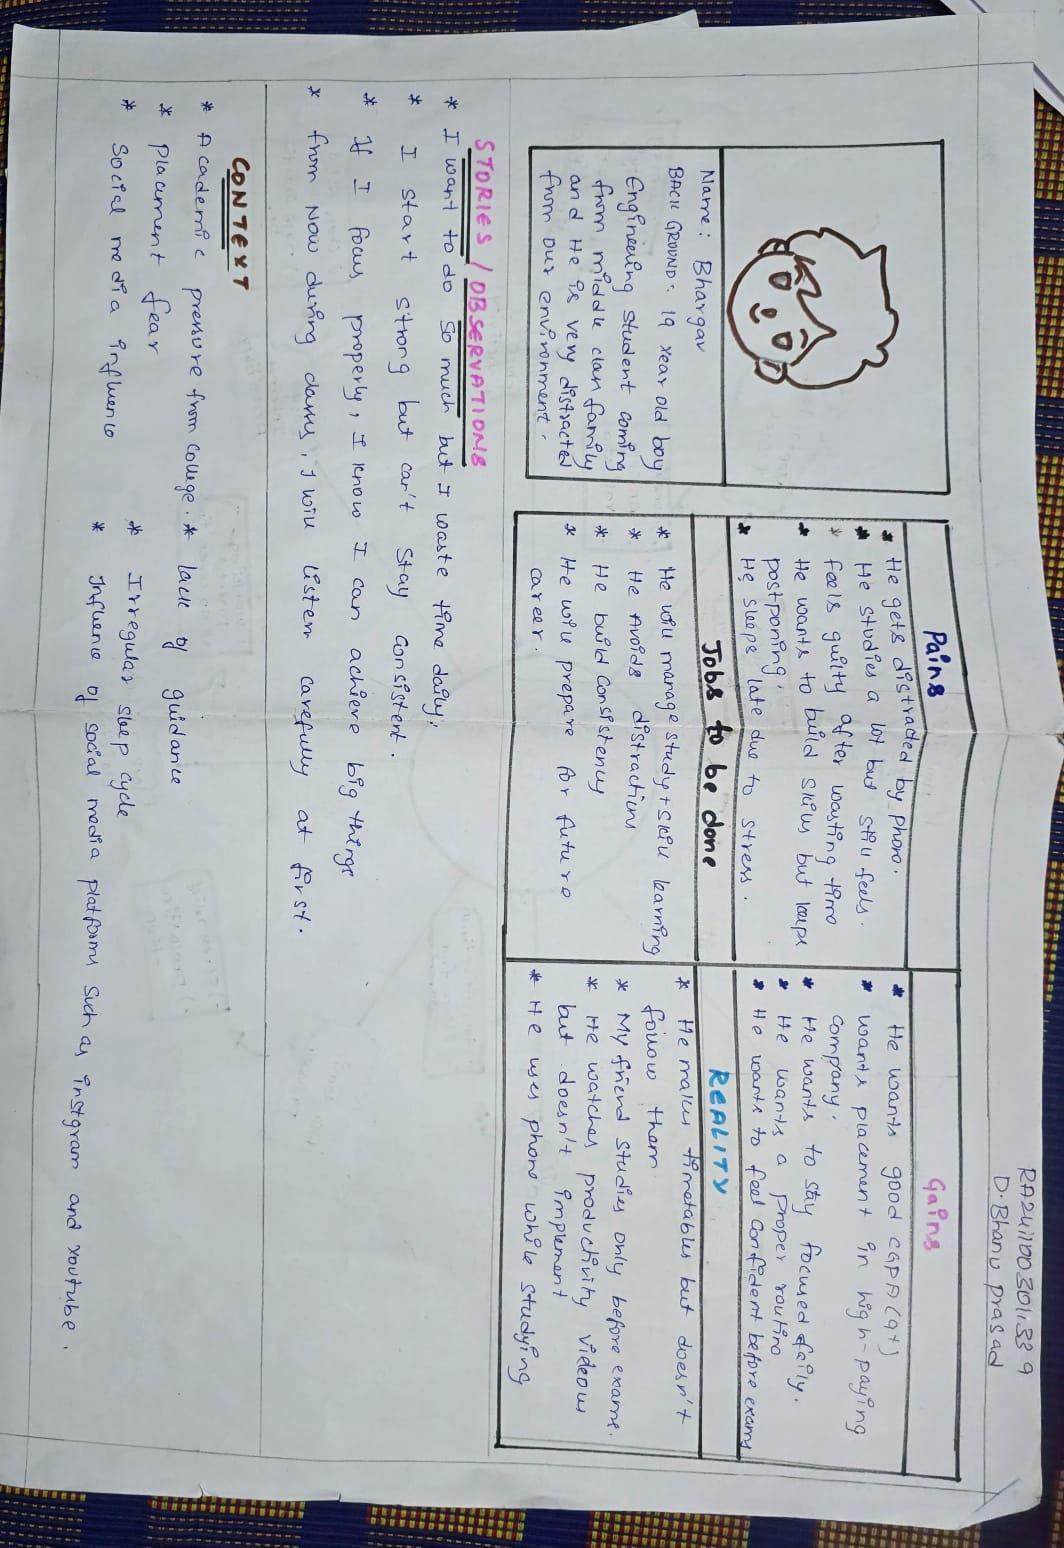 RA2411003011339
D. Bhanu prasad
Name: Bhargav
BACK GROUND: 19 year old boy
Engineering student coming
from middle class family
and He is very distracted
from our environment.
Pains
* He gets distracted by phone.
* He studies a lot but still feels.
* feels guilty after wasting time
* He wants to build skills but keeps
postponing.
* He sleeps late due to stress.
Gains
* He wants good CGPA (9+)
* wants placement in high-paying
company.
* He wants to stay focused daily.
* He wants a proper routine
* He wants to feel confident before exams
Jobs to be done
* He will manage study + skill learning
* He Avoids distractions
* He build consistency
* He will prepare for future
career.
REALITY
* He makes timetables but doesn't
follow them
* My friend studies only before exams.
* He watches productivity videos
but doesn't implement
* He uses phone while studying
STORIES / OBSERVATIONS
* I want to do so much but I waste time daily.
* I start strong but can't stay consistent.
* If I focus properly, I know I can achieve big things
* from Now during classes, I will listen carefully at first.
CONTEXT
* Academic pressure from college.
* placement fear
* Social media influence
* lack of guidance
* Irregular sleep cycle
* Influence of social media platforms such as instgram and youtube.